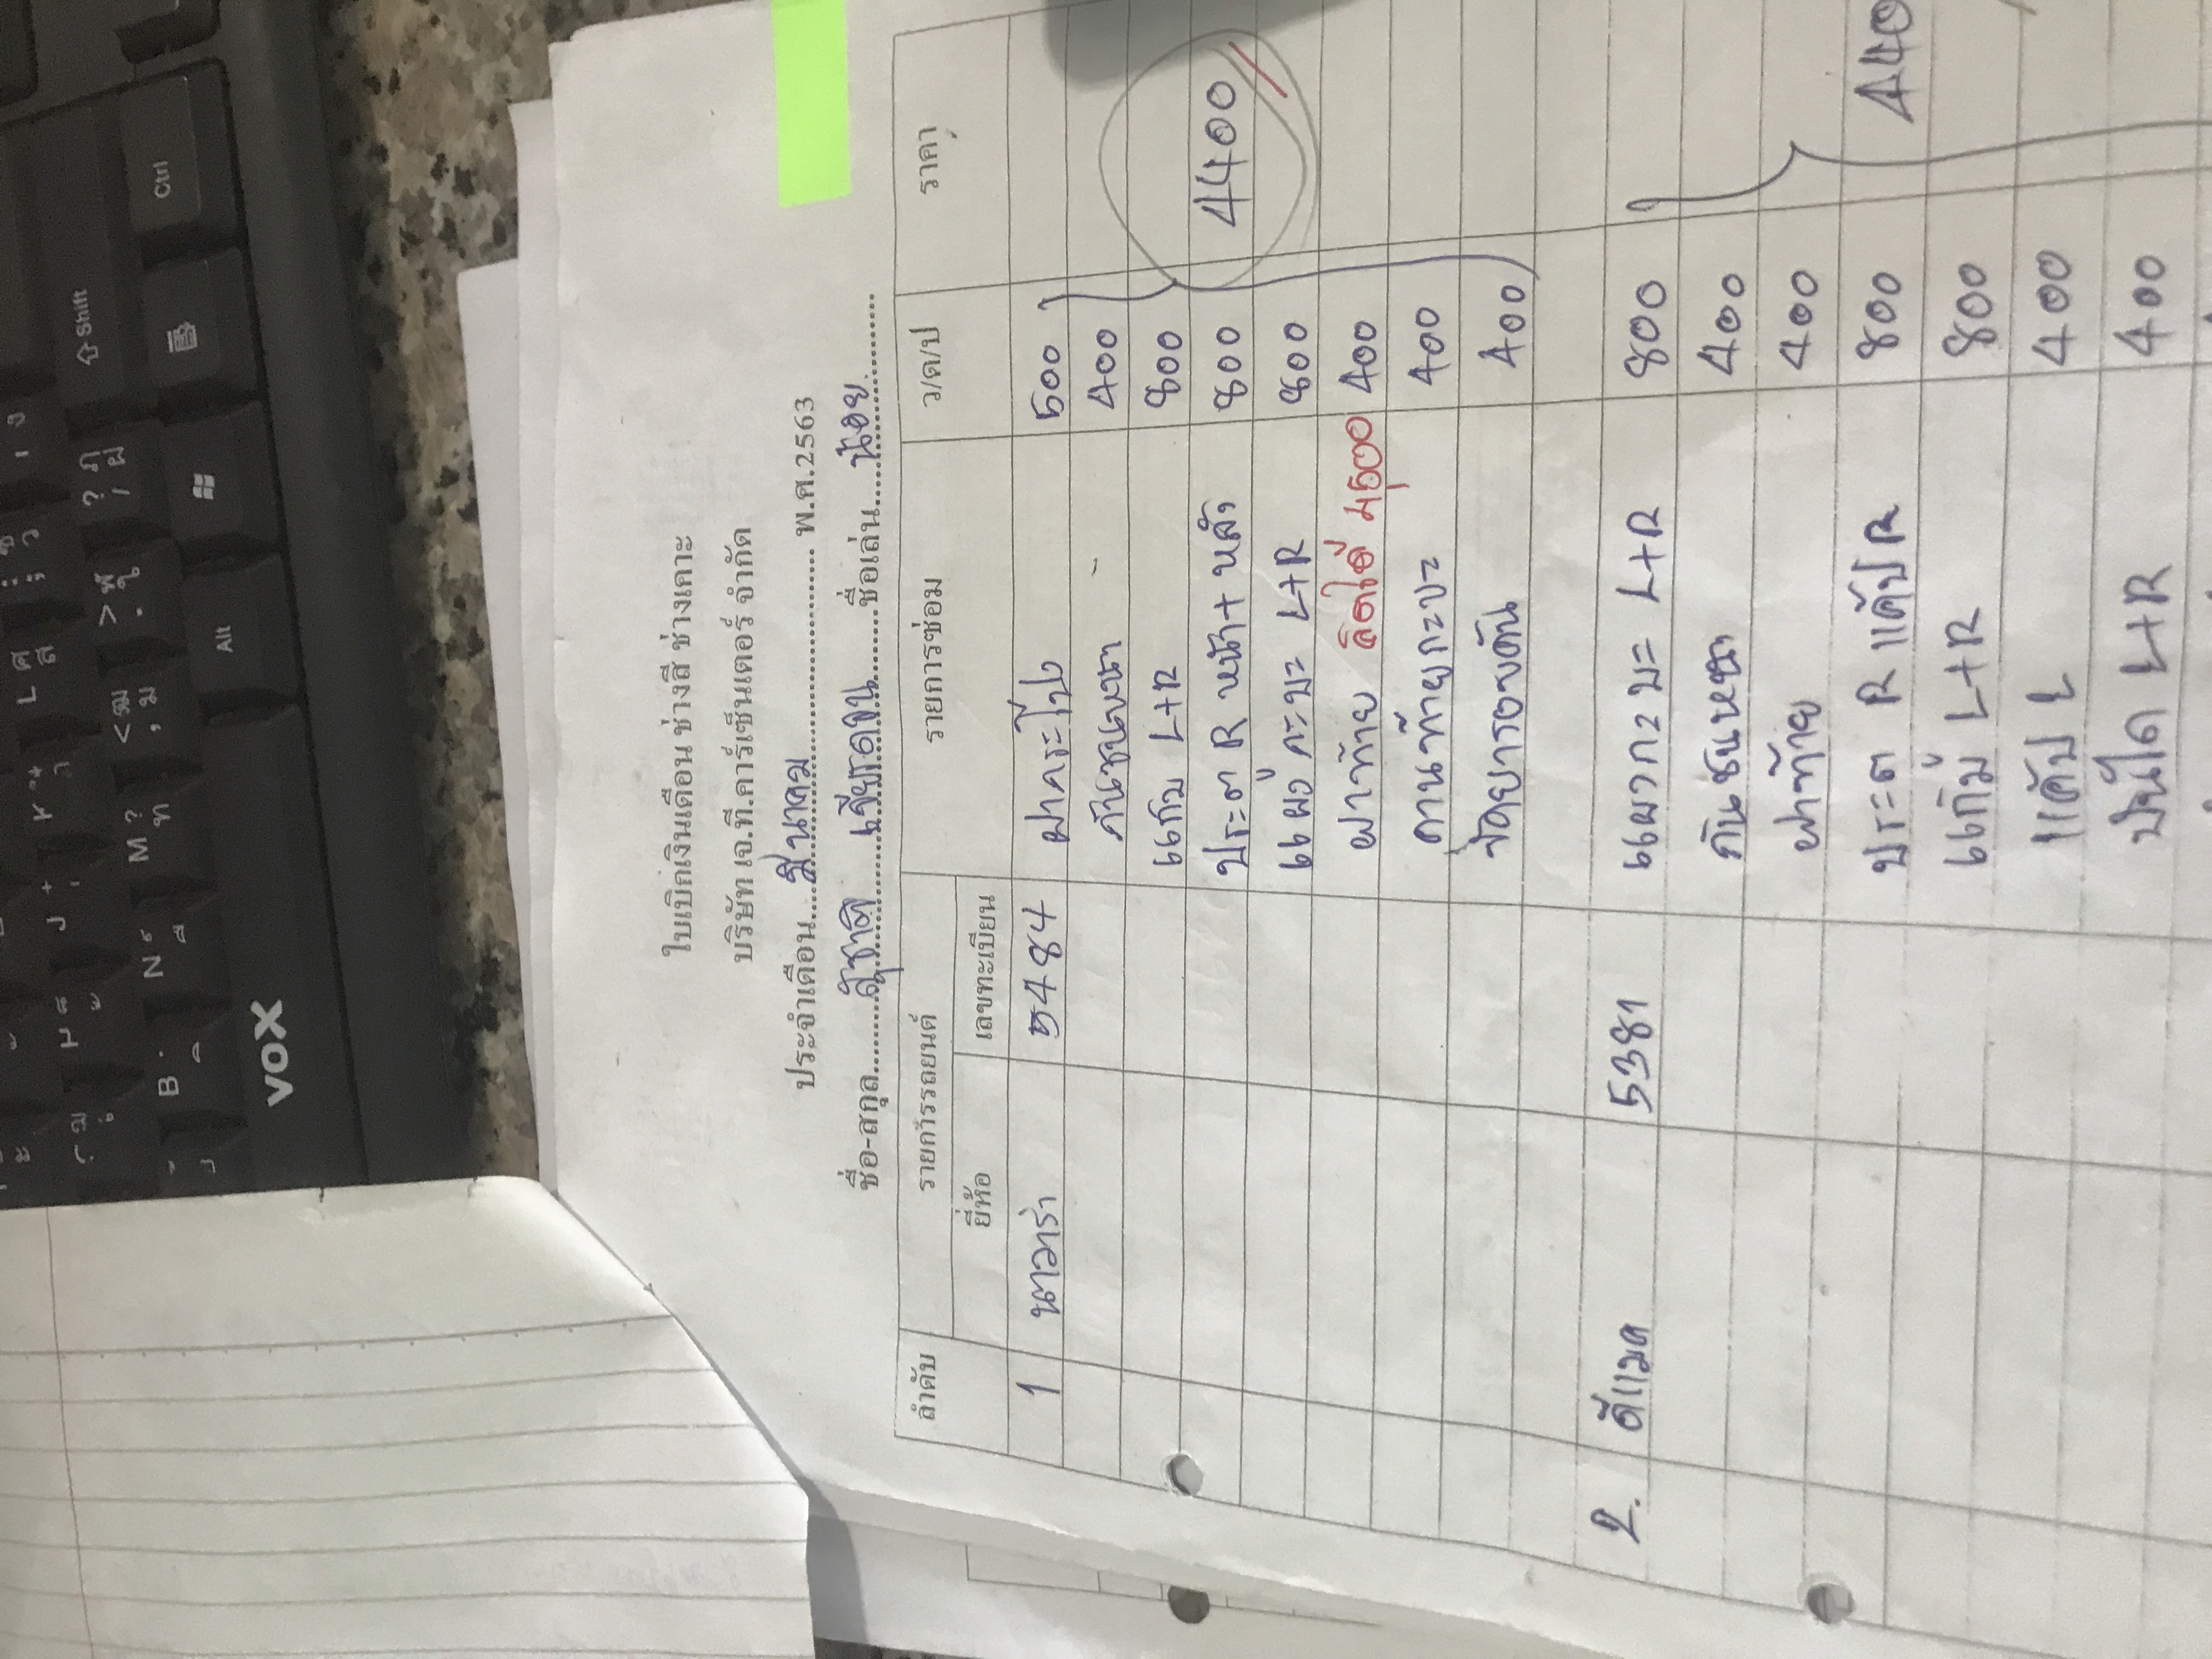 ใบเบิกเงินเดือน ช่างสี ช่างเคาะ
บริษัท เจ.ที.คาร์เซ็นเตอร์ จำกัด
ประจำเดือน....มีนาคม.... พ.ศ.2563
ชื่อ-สกุล....สุชาติ ....ชื่อเล่น....น้อย....
ลำดับ รายการรถยนต์ รายการซ่อม ว/ด/ป ราคา
ยี่ห้อ เลขทะเบียน
1 นาวาร่า 5484 ฝากระโปรง 500
กันชนหน้า 400
แก้ม L+R 800
ประตู R หน้า + หลัง 800 4400
แผงกะบะ L+R 800
ฝาท้าย คิดได้ 4500 400
คานท้ายกะบะ 400
400
2. ดีแมค 5381 แผงกะบะ L+R 800
กันชนหน้า 400
ฝาท้าย 400
ประตู R แค๊ป R 800 440
แก้ม L+R 800
แค๊ป L 400
บันได L+R 400
Shift
Ctrl
Alt
VOX
B
N
M